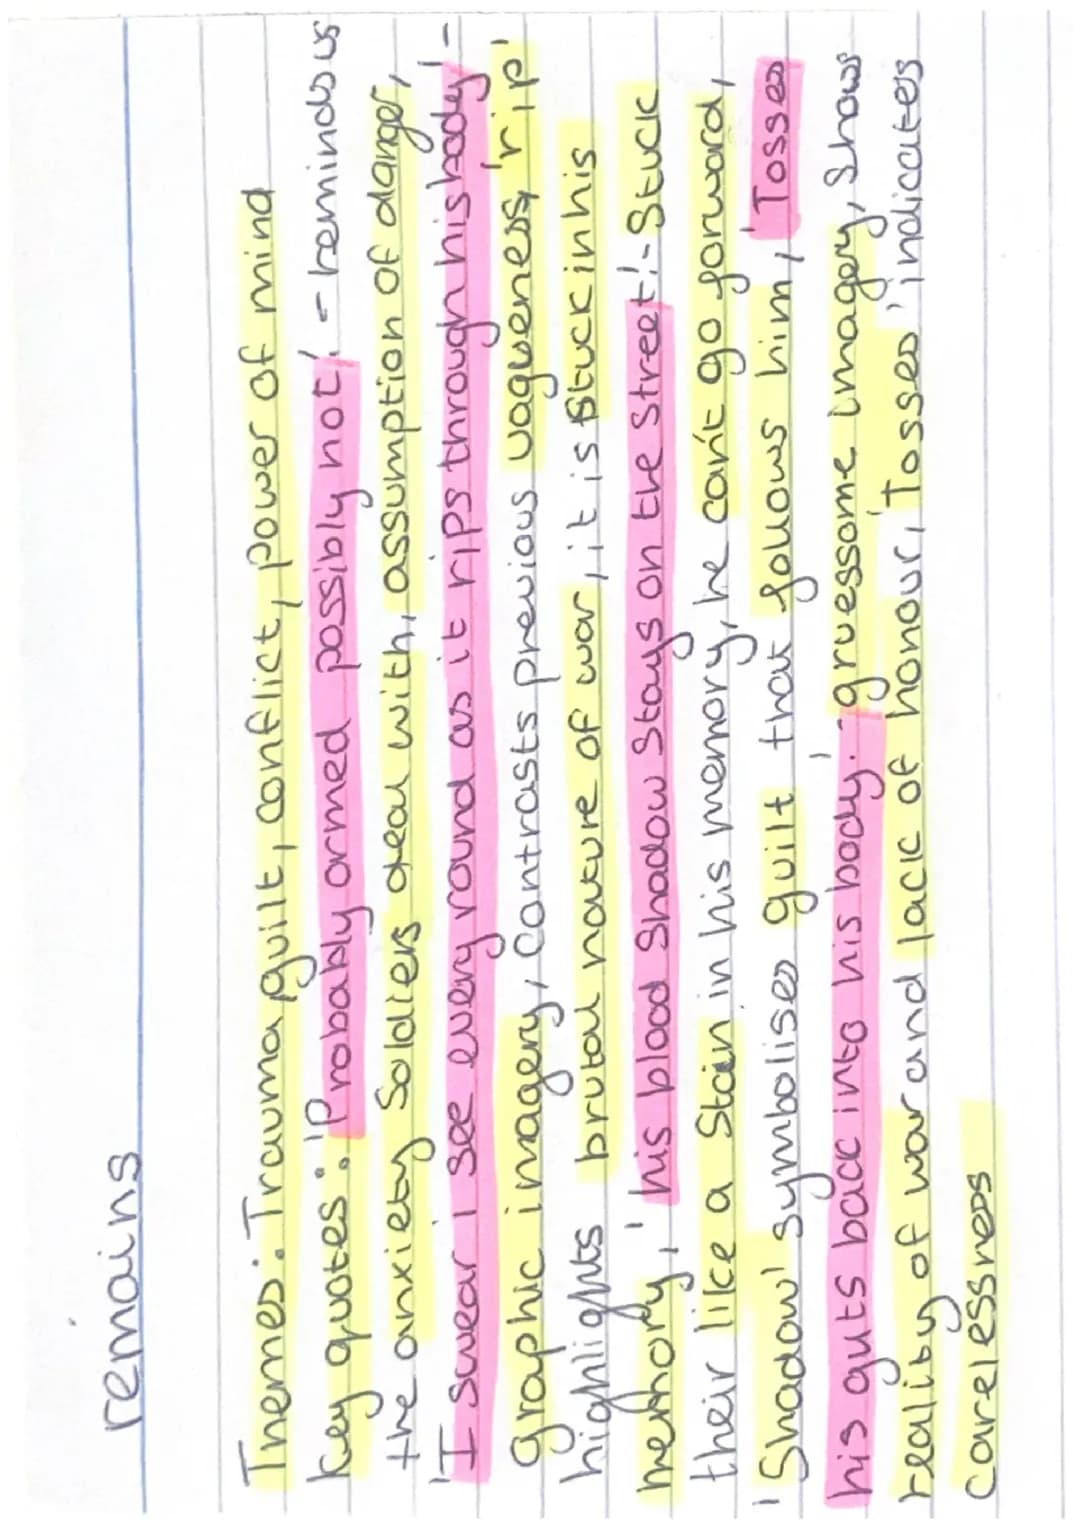 remains
Themes: Trauma, guilt, conflict, power of mind
Key quotes: 'Probably armed possibly not' - reminds us
the anxiety soldiers deal with, assumption of danger,
'I swear I see every round as it rips through his body' -
graphic imagery, contrasts previous vagueness, 'rip'
highlights brutal nature of war, it is stuck in his
memory, 'his blood shadow stays on the street' - stuck
their like a stain in his memory, he can't go forward,
'Shadow' symbolises guilt that follows him, 'Tosses
his guts back into his body' - gruessome imagery, shows
reality of war and lack of honour, 'Tosses' indicates
carelessness